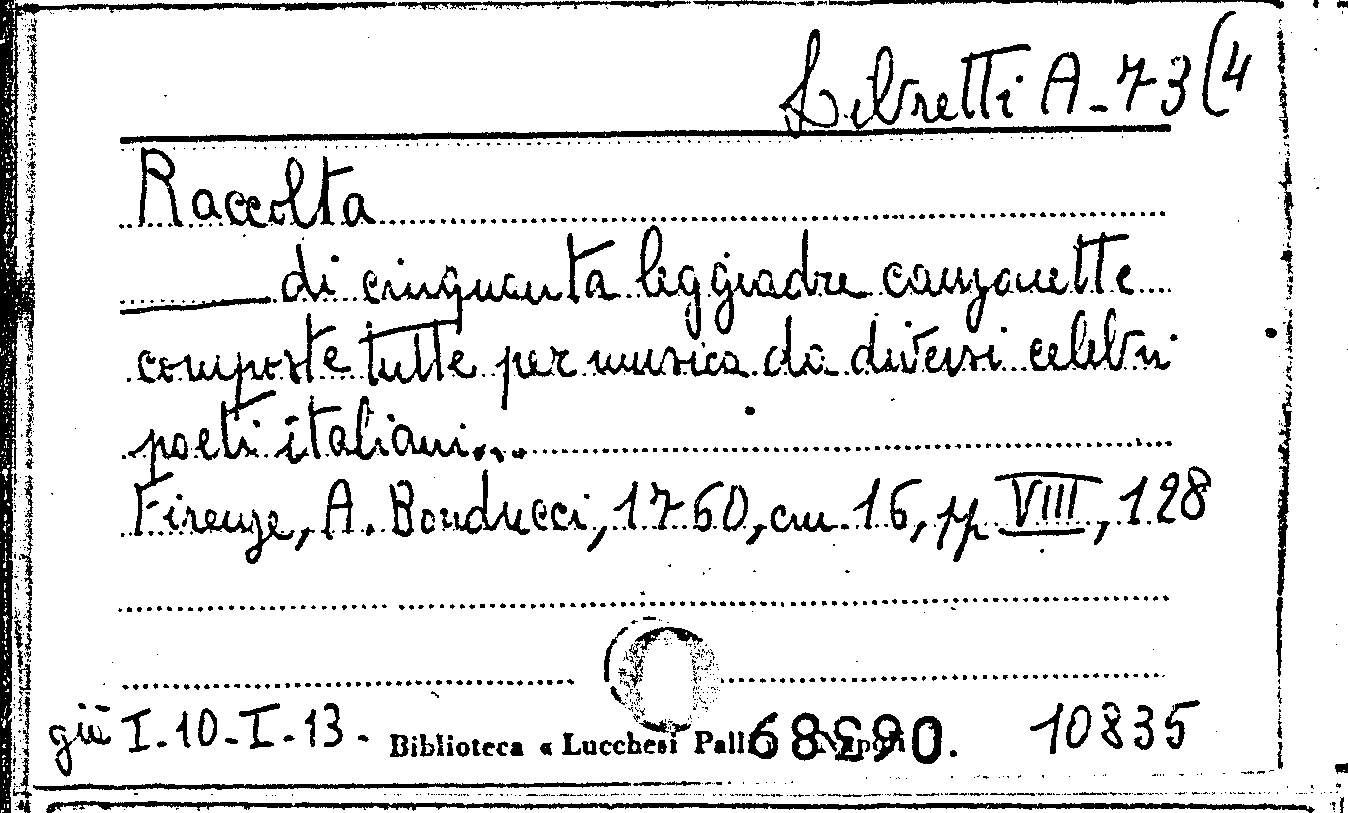 Libretti A-73(4
Raccolta
di cinquanta leggiadre canzonette
composte tutte per musica da diversi celebri
poeti italiani...
Firenze, A. Bonducci, 1760, cm. 16, pp VIII, 128
già I-10-I-13- Biblioteca « Lucchesi 10835